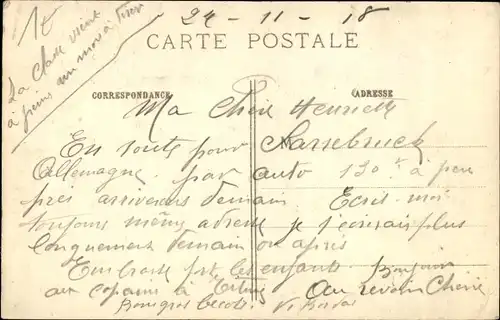 24 - 11 - 18
CARTE POSTALE
CORRESPONDANCE
ADRESSE
Ma Chère Henriette
En route pour Sarrebruck
Allemagne par auto 130 à peu
près arriverons demain Ecris-moi
toujours même adresse je t'écrirais plus
longuement demain ou après
Embrasse les enfants Bonjour
aux copains à Au revoir Chérie
Bons gros
La classe vient
à peine un mois à tirer